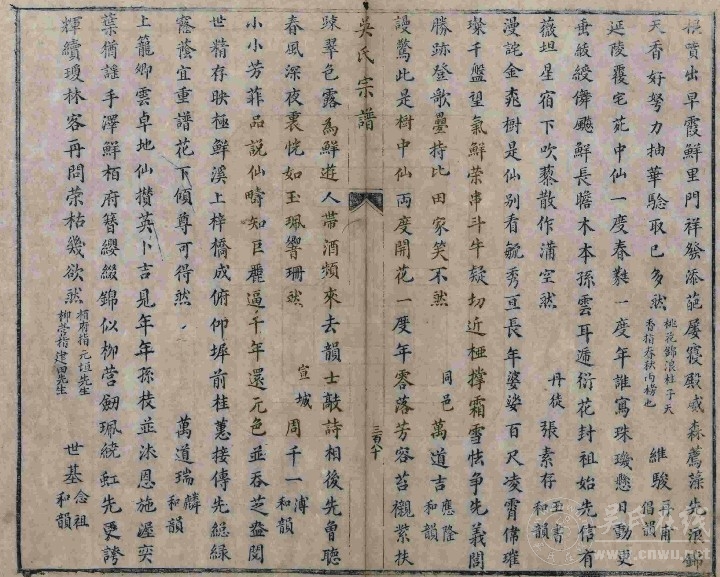 損賞出早霞鮮里門祥發添葩屢寢殿威森薦藻先浪錦
天香好努力抽華驗取已多然 桃花錦浪桂子天香指春秋兩榜也 維駿 再甫倡韻
延陵覆宅苑中仙一度春蕤一度年誰寫珠璣懸日動更
垂綾綬儛飈鮮長瞻木本孫雲耳逓衍花封祖始先信有
薇垣星宿下吹藜散作滿空然 丹徒 張素存 玉書和韻
漫詫金堯樹是仙别看毓秀亘長年婆娑百尺凌霄傳璀
璨千盤望氣鮮荣串斗牛疑切近極撑霜雪怯争先義閣
勝跡登歌疊持比田家笑不然 同邑 萬道吉 應隆和韻
謾驚此是樹中仙兩度開花一度年零落芳容苔襯紫扶
吳氏宗譜 三百八十
踈翠色露為鮮遊人帶酒頻來去韻士敲詩相後先曾聽
春風深夜裏恍如玉珮響珊然 宣城 周千一 溥和韻
小小芳菲品説仙疇知巨麗逼千年還元色並吞芝盎閱
世精存映極鮮溪上梓橋成俯仰墀前桂蕙接傳先緑
窓蔭宜重譜花下傾尊可得然 萬道瑞 麟和韻
上籠卿雲卓地仙攢英卜吉見年年孫枝並沐恩施渥奕
葉猶手澤鮮栢府簪纓綴錦似柳營劒珮繞虹先更誇
輝續瓊林客再問荣枯幾欲然 栢府指元垣先生 柳營指建田先生 世基 念祖和韻
吴氏在线
www.cnwu.net